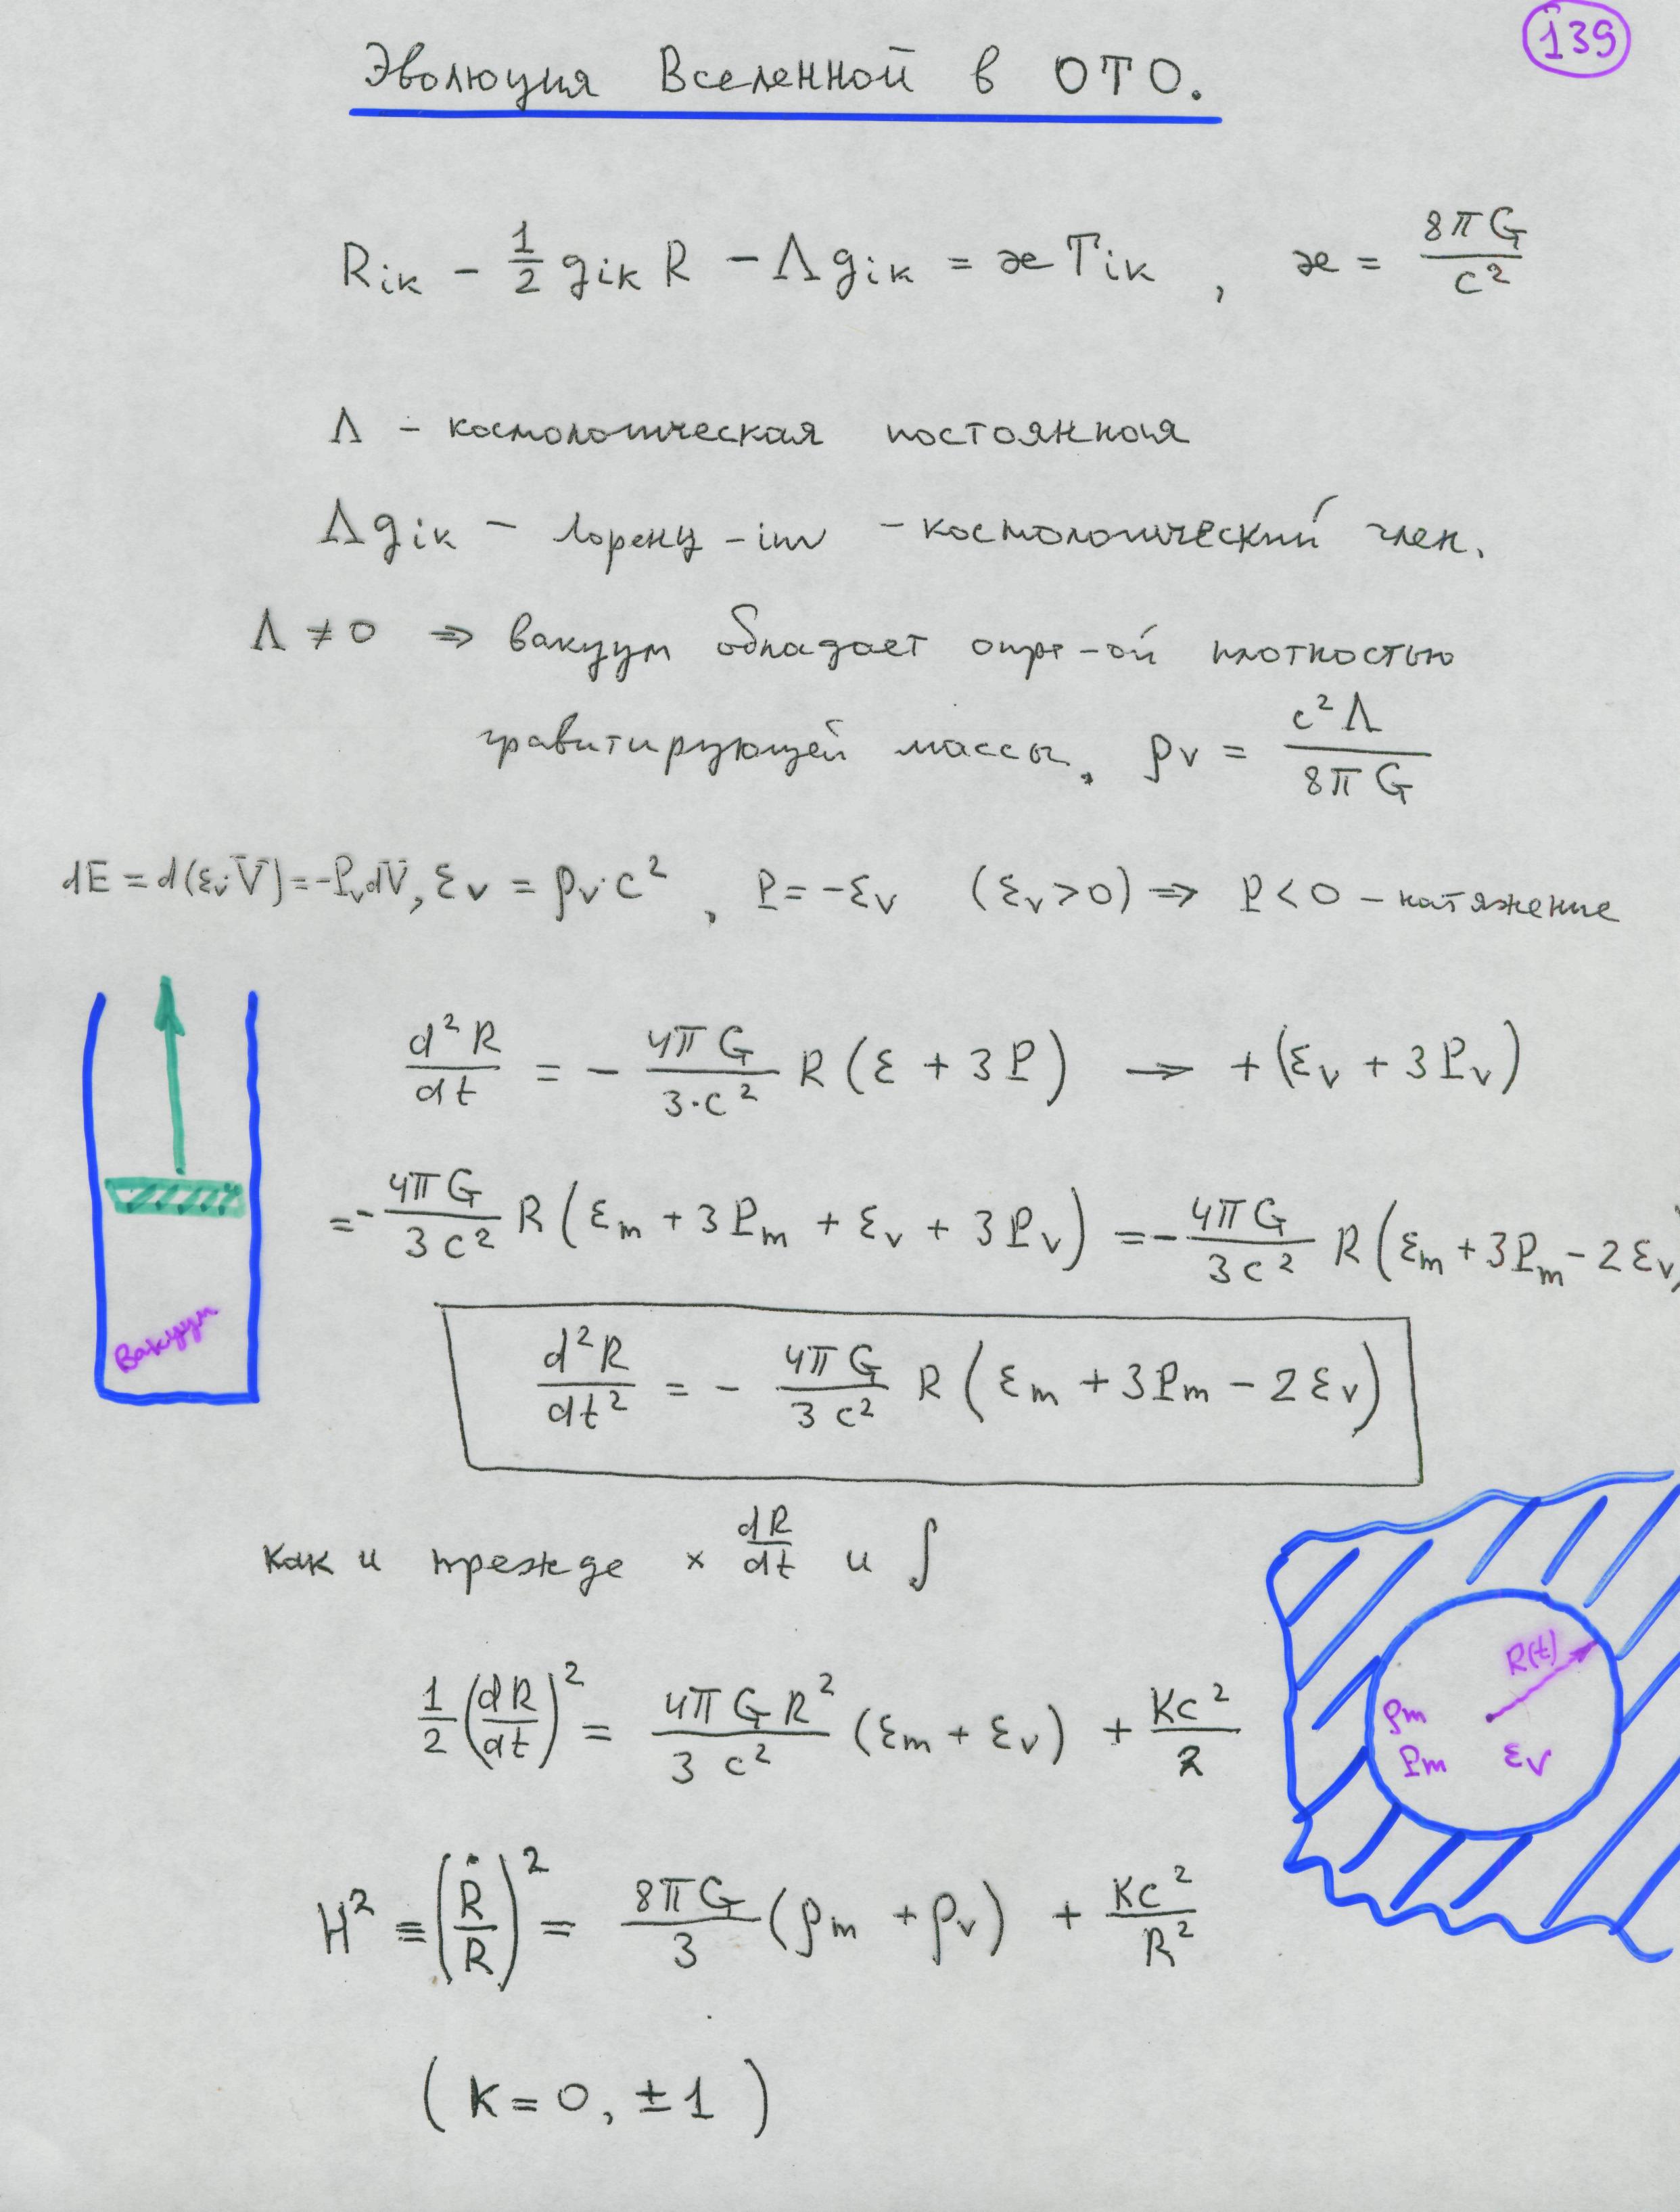 139
Эволюция Вселенной в ОТО.
R_ik - 1/2 g_ik R - Λ g_ik = æ T_ik , æ = 8πG/c²
Λ - космологическая постоянная
Λ g_ik - Лоренц-inv - космологический член.
Λ ≠ 0 ⇒ вакуум обладает опре-ой плотностью
гравитирующей массы, ρ_v = c²Λ/8πG
dE = d(ε_v·V) = -P_v dV, ε_v = ρ_v·c² , P = -ε_v (ε_v > 0) ⇒ P < 0 - натяжение
d²R/dt = - 4πG/3·c² R (ε + 3P) → + (ε_v + 3P_v)
= - 4πG/3c² R (ε_m + 3P_m + ε_v + 3P_v) = - 4πG/3c² R (ε_m + 3P_m - 2ε_v)
Вакуум
d²R/dt² = - 4πG/3c² R (ε_m + 3P_m - 2ε_v)
как и прежде × dR/dt и ∫
1/2 (dR/dt)² = 4πGR²/3c² (ε_m + ε_v) + Kc²/2
R(t)
ρ_m
P_m ε_v
H² ≡ (Ṙ/R)² = 8πG/3 (ρ_m + ρ_v) + Kc²/R²
(K = 0, ±1)